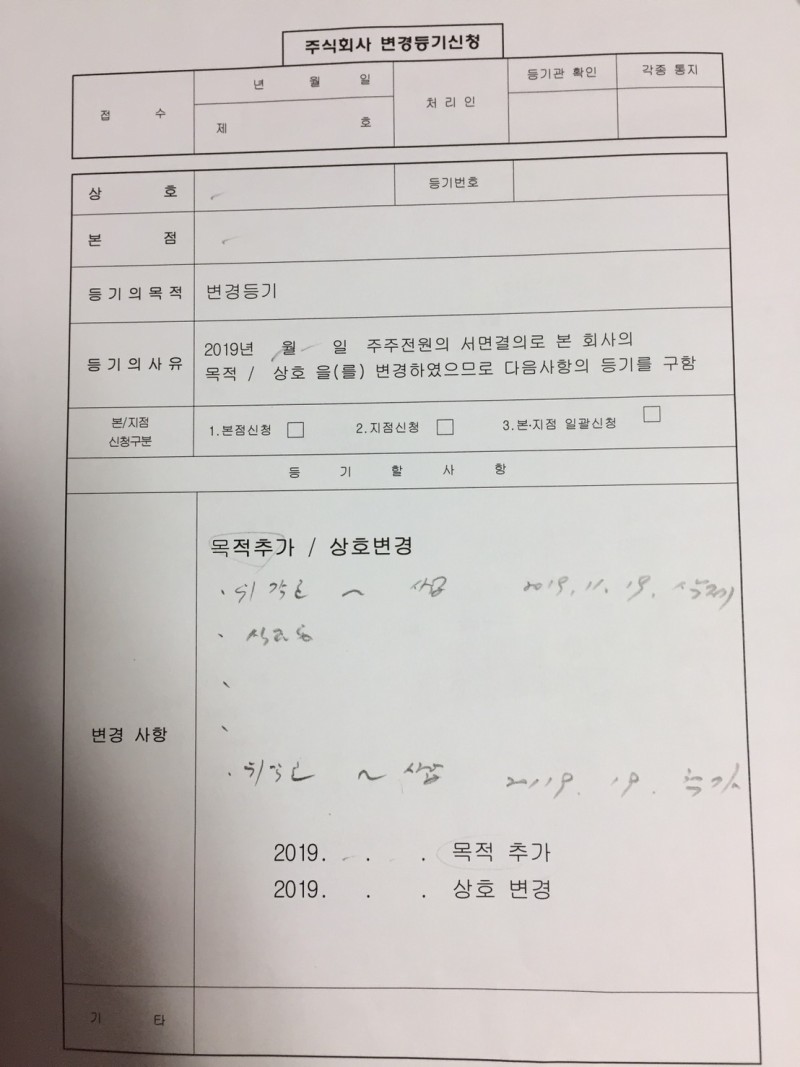 주식회사 변경등기신청
접 수
년 월 일
제 호
처 리 인
등기관 확인
각종 통지
상 호
등기번호
본 점
등 기 의 목 적
변경등기
등 기 의 사 유
2019년 월 일 주주전원의 서면결의로 본 회사의
목적 / 상호 을(를) 변경하였으므로 다음사항의 등기를 구함
본/지점
신청구분
1.본점신청 □
2.지점신청 □
3.본·지점 일괄신청 □
등 기 할 사 항
변경 사항
목적추가 / 상호변경
. 위 각호 ~ 사업 2019. 11. 19. 삭제
. 위 각호 ~ 사업 2019. 19. 추가
2019. . . 목적 추가
2019. . . 상호 변경
기 타